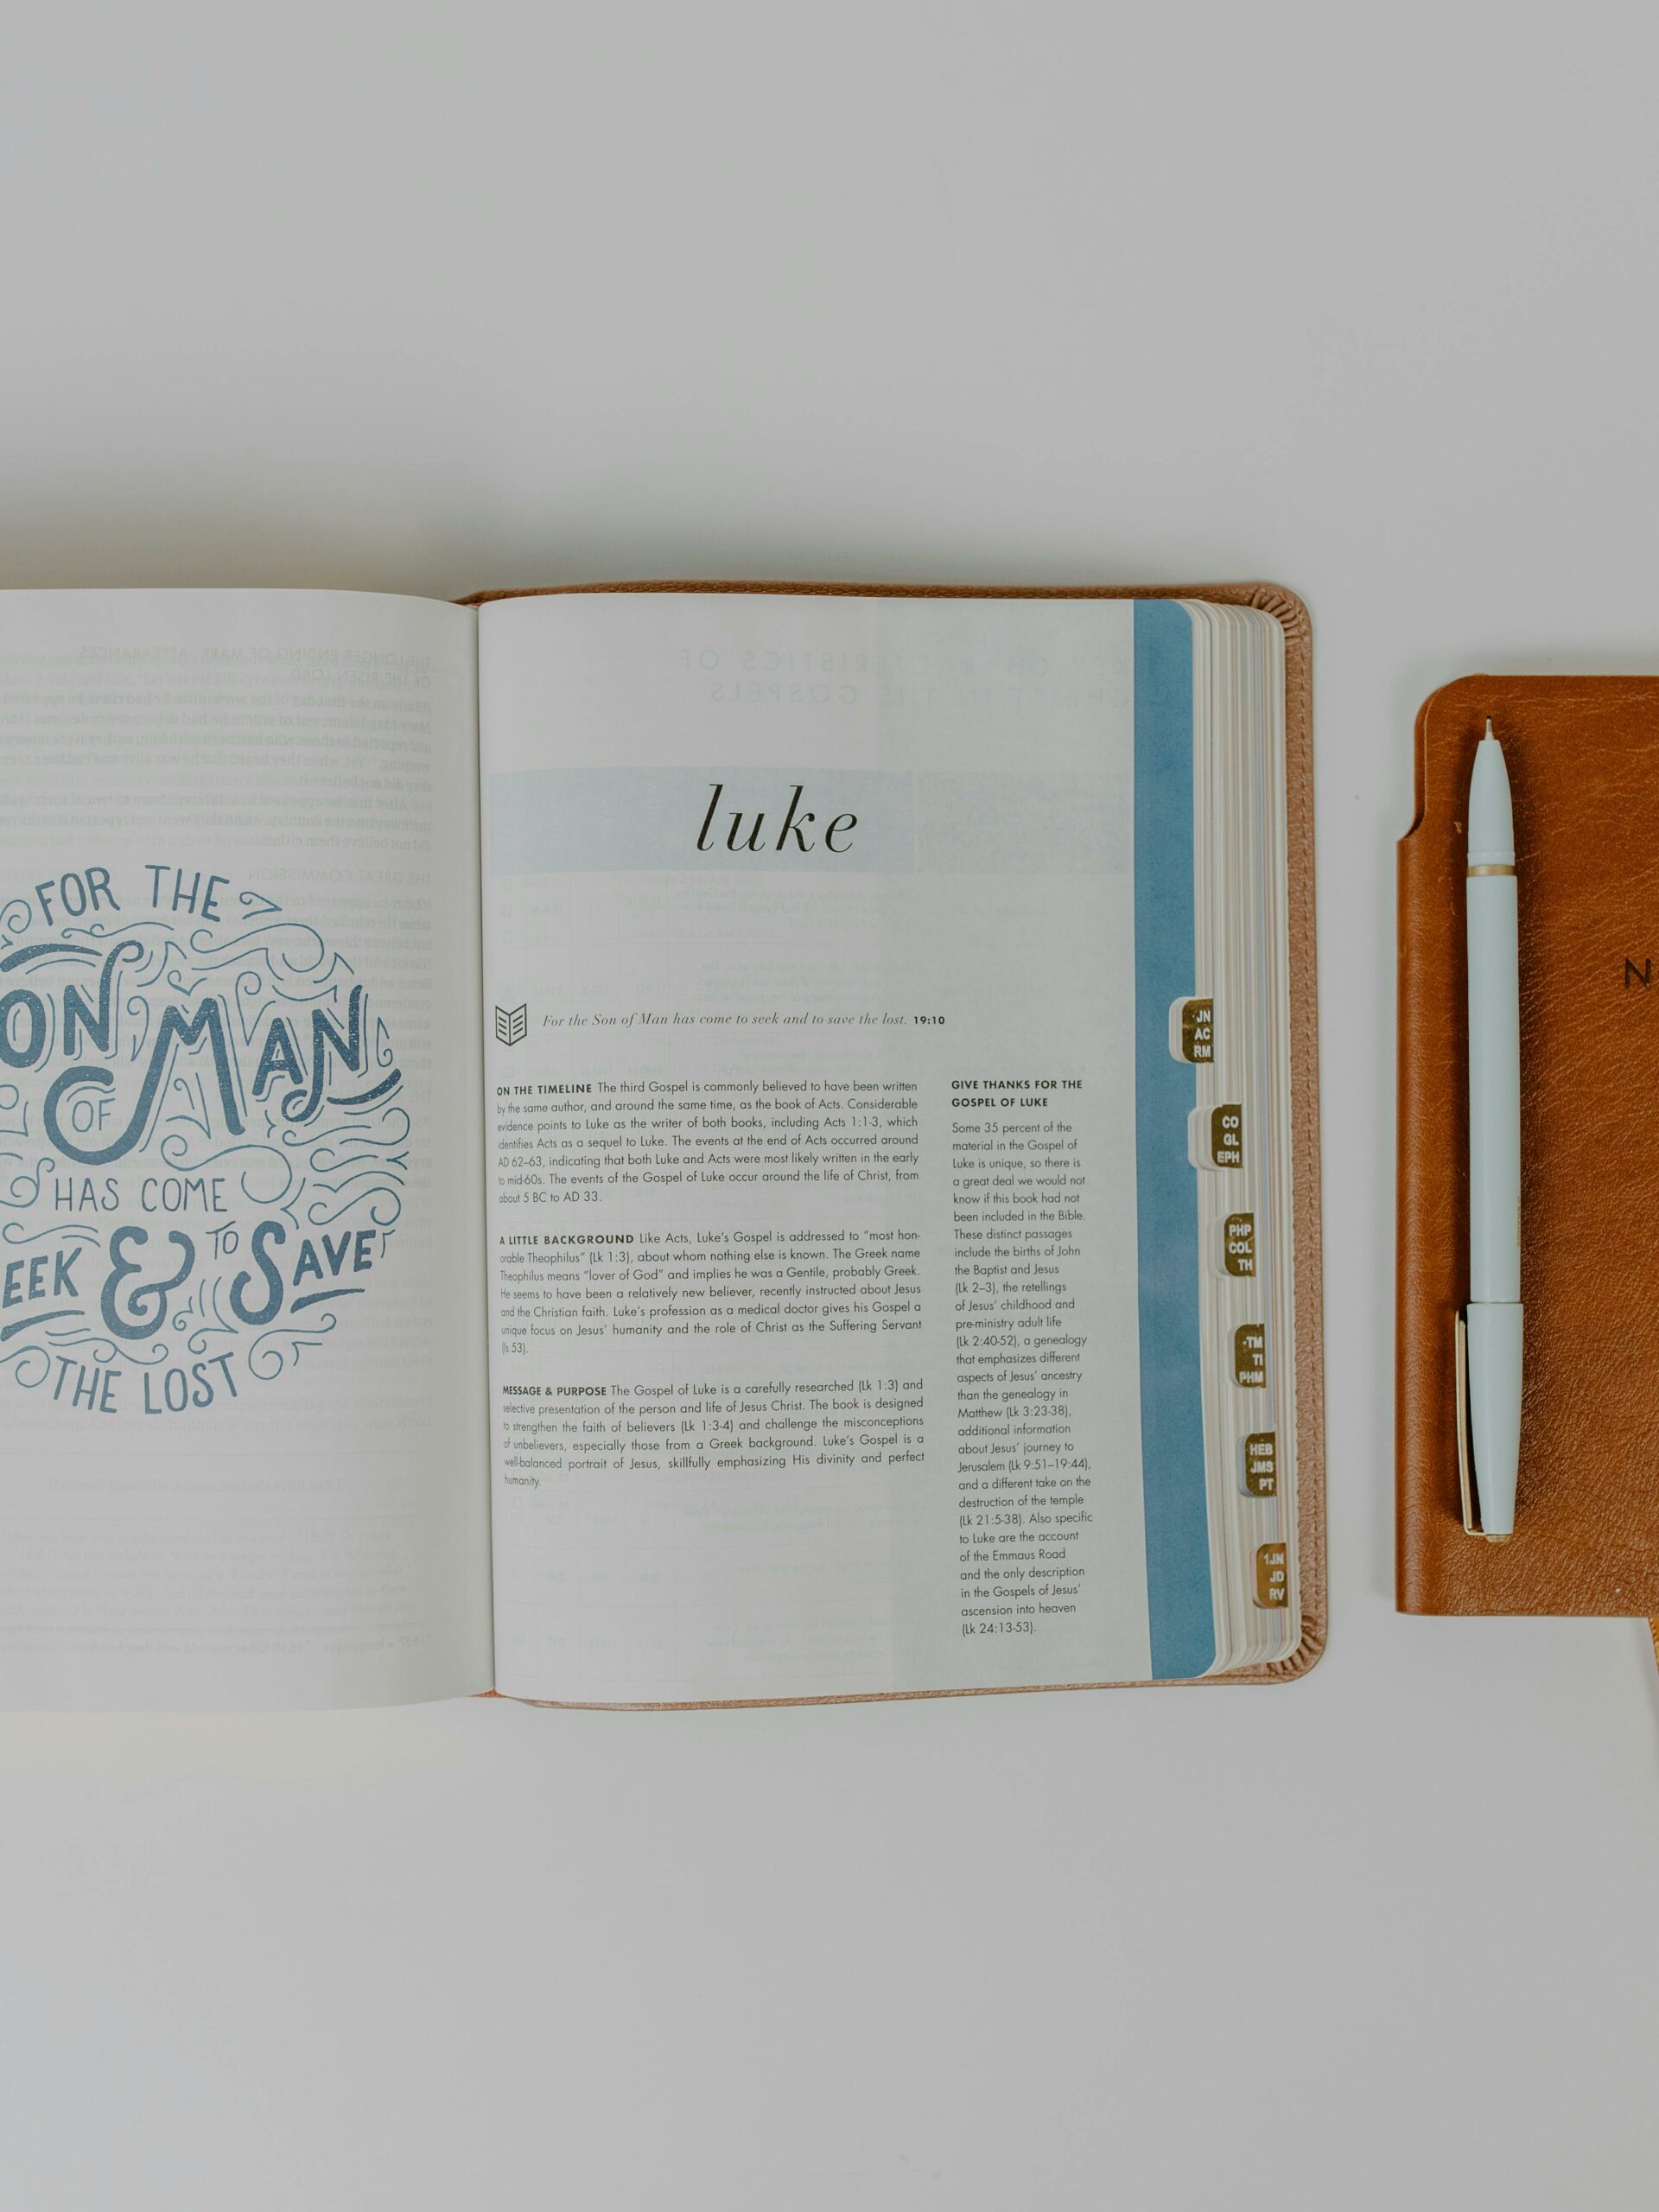 FOR THE
ON MAN
OF
HAS COME
EEK & TO SAVE
THE LOST
luke
For the Son of Man has come to seek and to save the lost. 19:10
ON THE TIMELINE The third Gospel is commonly believed to have been written
by the same author, and around the same time, as the book of Acts. Considerable
evidence points to Luke as the writer of both books, including Acts 1:1-3, which
identifies Acts as a sequel to Luke. The events at the end of Acts occurred around
AD 62–63, indicating that both Luke and Acts were most likely written in the early
to mid-60s. The events of the Gospel of Luke occur around the life of Christ, from
about 5 BC to AD 33.
A LITTLE BACKGROUND Like Acts, Luke's Gospel is addressed to “most hon-
orable Theophilus” (Lk 1:3), about whom nothing else is known. The Greek name
Theophilus means “lover of God” and implies he was a Gentile, probably Greek.
He seems to have been a relatively new believer, recently instructed about Jesus
and the Christian faith. Luke's profession as a medical doctor gives his Gospel a
unique focus on Jesus' humanity and the role of Christ as the Suffering Servant
(Is 53).
MESSAGE & PURPOSE The Gospel of Luke is a carefully researched (Lk 1:3) and
selective presentation of the person and life of Jesus Christ. The book is designed
to strengthen the faith of believers (Lk 1:3-4) and challenge the misconceptions
of unbelievers, especially those from a Greek background. Luke's Gospel is a
well-balanced portrait of Jesus, skillfully emphasizing His divinity and perfect
humanity.
GIVE THANKS FOR THE
GOSPEL OF LUKE
Some 35 percent of the
material in the Gospel of
Luke is unique, so there is
a great deal we would not
know if this book had not
been included in the Bible.
These distinct passages
include the births of John
the Baptist and Jesus
(Lk 2–3), the retellings
of Jesus' childhood and
pre-ministry adult life
(Lk 2:40-52), a genealogy
that emphasizes different
aspects of Jesus' ancestry
than the genealogy in
Matthew (Lk 3:23-38),
additional information
about Jesus' journey to
Jerusalem (Lk 9:51–19:44),
and a different take on the
destruction of the temple
(Lk 21:5-38). Also specific
to Luke are the account
of the Emmaus Road
and the only description
in the Gospels of Jesus'
ascension into heaven
(Lk 24:13-53).
JN
AC
RM
CO
GL
EPH
PHP
COL
TH
TM
TI
PHM
HEB
JMS
PT
1JN
JD
RV
N